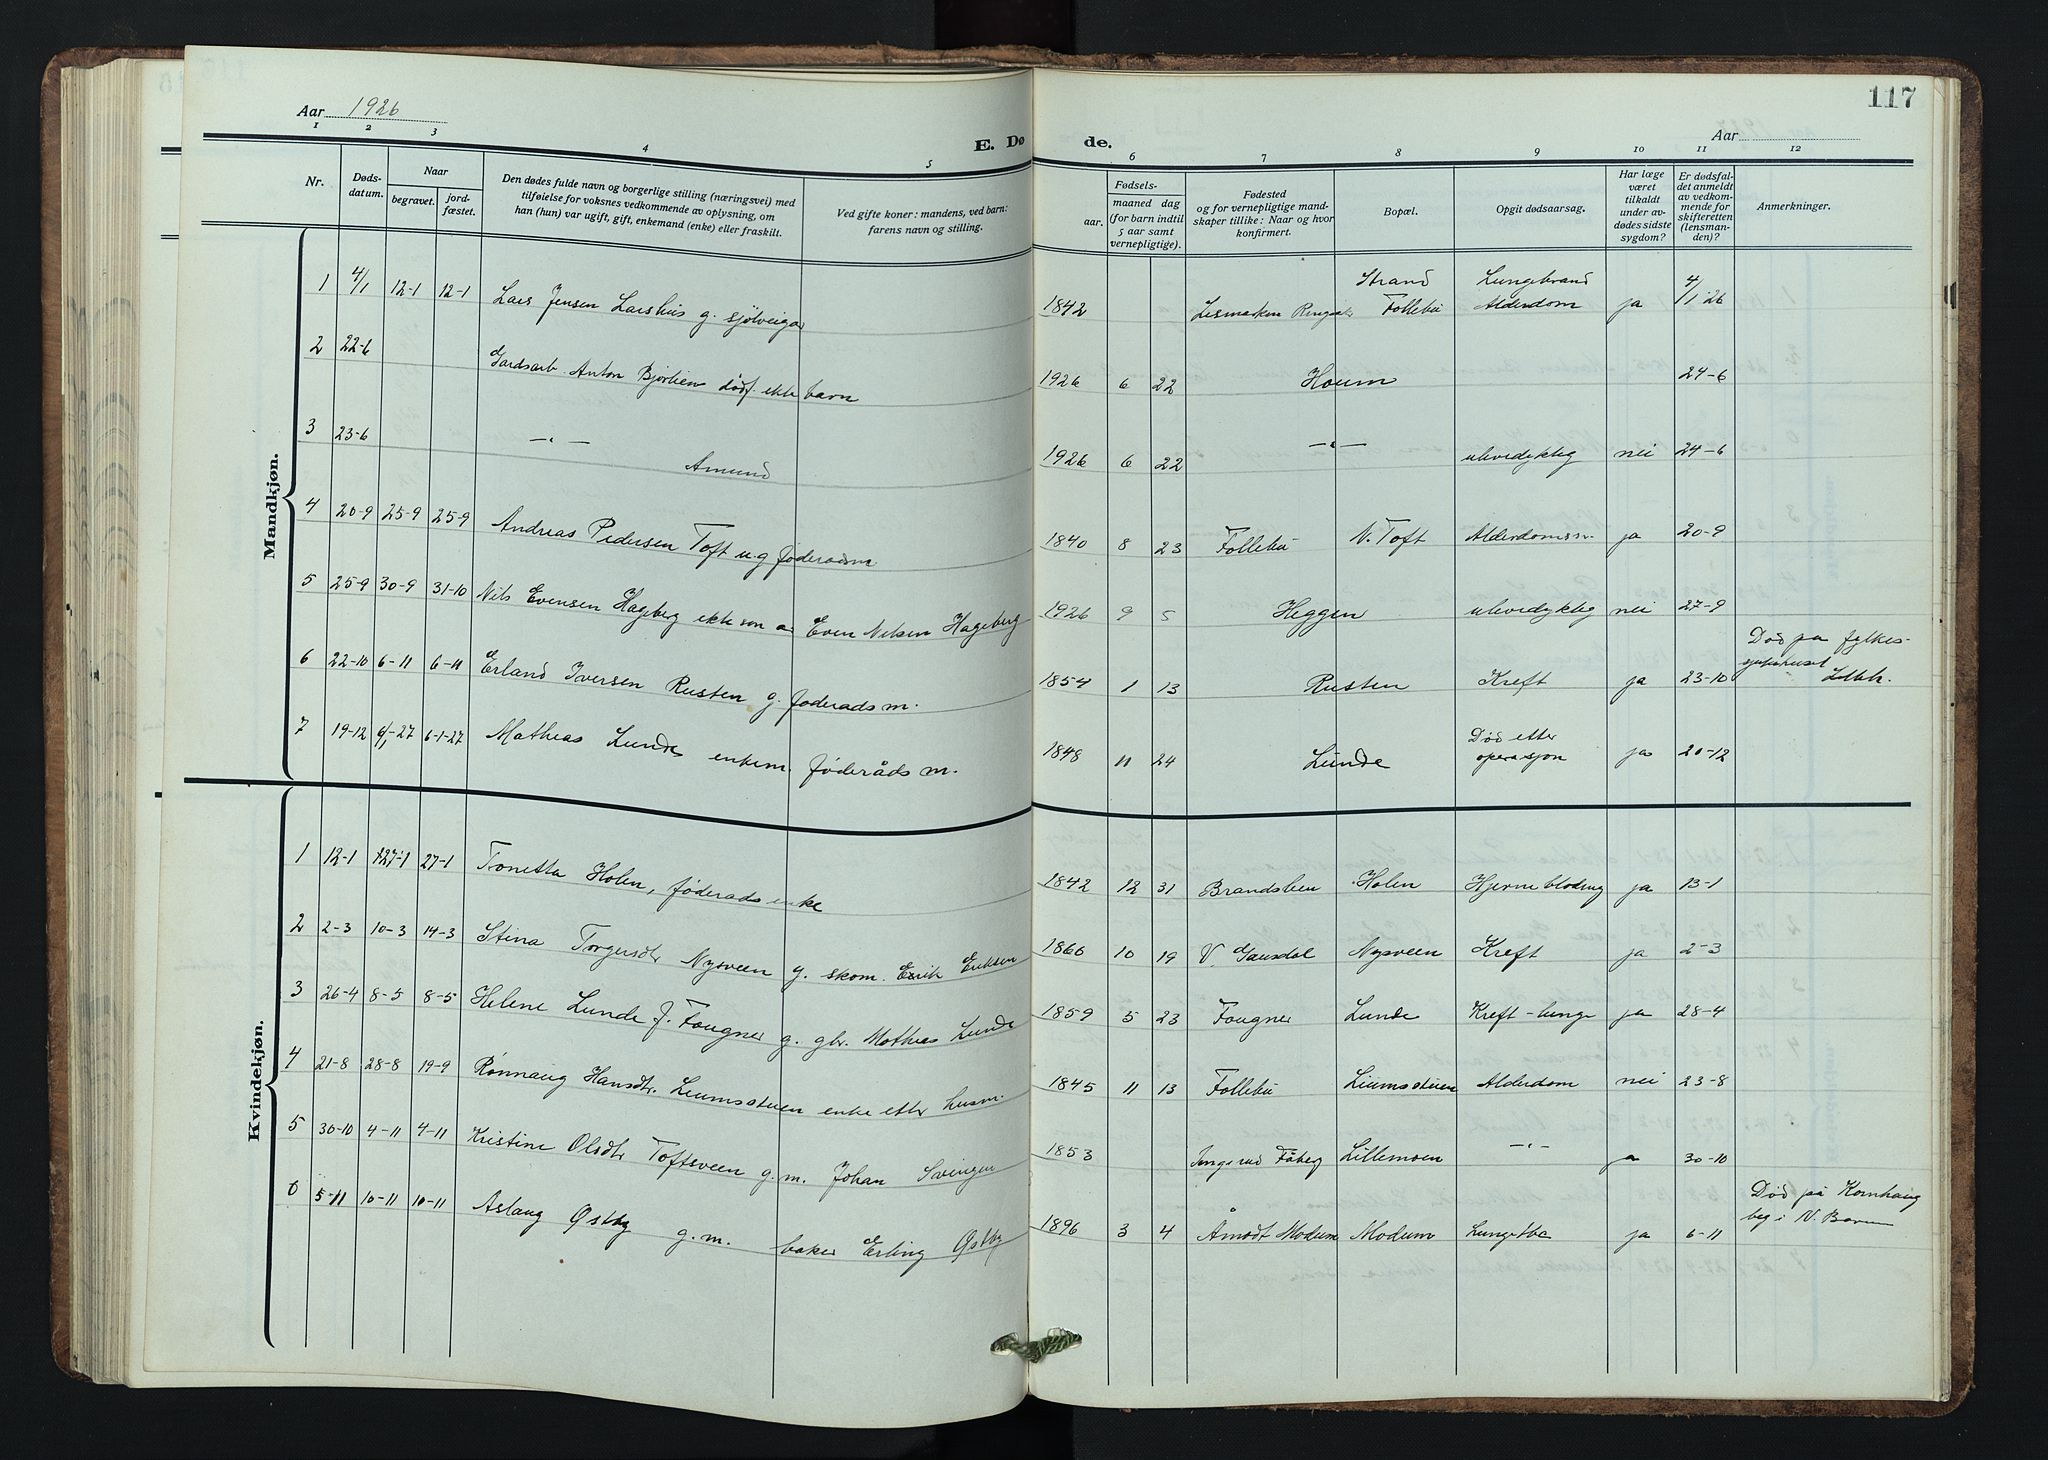 117
Aar 1926
Aar
E. Dø de.
1 2 3 4 5 6 7 8 9 10 11 12
Nr.
Døds-
datum.
Naar
begravet.
jord-
fæstet.
Den dødes fulde navn og borgerlige stilling (næringsvei) med
tilføielse for voksnes vedkommende av oplysning, om
han (hun) var ugift, gift, enkemand (enke) eller fraskilt.
Ved gifte koner: mandens, ved barn:
farens navn og stilling.
Fødsels-
aar.
maaned dag
(for barn indtil
5 aar samt
vernepligtige).
Fødested
og for vernepligtige mand-
skaper tillike: Naar og hvor
konfirmert.
Bopæl.
Opgit dødsaarsag.
Har læge
været
tilkaldt
under av-
dødes sidste
sygdom?
Er dødsfal-
det anmeldt
av vedkom-
mende for
skifteretten
(lensman-
den)?
Anmerkninger.
Mandkjøn.
1 4/1 12-1 12-1 Lars Jensen Larshus g. sjölveigar 1842 Ringsak Strand Follebu Lungebrand Alderdom ja 4/1 26
2 22-6 Gardsarb. Anton Bjørlien dödf. ekte barn 1926 6 22 Houm 24-6
3 23-6 —"— Amund 1926 6 22 —"— ulevedyktig nei 24-6
4 20-9 25-9 25-9 Andreas Pedersen Toft u.g föderadsm 1840 8 23 Follebu N. Toft Alderdomssv. ja 20-9
5 25-9 30-9 31-10 Nils Evensen Hageberg ekte son av Even Nilsen Hageberg 1926 9 5 Heggen ulevedyktig nei 27-9
6 22-10 6-11 6-11 Erland Iversen Rusten g. föderadsm. 1854 1 13 Rusten Kreft ja 23-10 Död pa fylkes-
sjukehuset Lillh.
7 19-12 6/1-27 6-1-27 Mathias Lunde enkem. föderåds m. 1848 11 24 Lunde Död etter operasjon ja 20-12
Kvindekjøn.
1 12-1 27-1 27-1 Tonetta Holen, föderads enke 1842 12 31 Brandslien Holen Hjerneblödning ja 13-1
2 2-3 10-3 14-3 Stina Torgersdtr Nysveen g. skom. Erik Eriksen 1860 10 19 V. Gausdal Nysveen Kreft ja 2-3
3 26-4 8-5 8-5 Helene Lunde f. Fougner g. gbr. Mathias Lunde 1859 5 23 Fougner Lunde Kreft-lunge ja 28-4
4 21-8 28-8 19-9 Rønnaug Hansdtr. Liumsstuen enke etter husm. 1845 11 13 Follebu Liumsstuen Alderdom nei 23-8
5 30-10 4-11 4-11 Kristine Olsdtr Toftsveen g.m. Johan Svingen 1853 Fåberg Lillemoen —"— ja 30-10
6 5-11 10-11 10-11 Aslaug Østby g.m. baker Erling Østby 1896 3 4 Åmodt Modum Modum Lungetbc ja 6-11 Död på Kornhaug
beg i N.